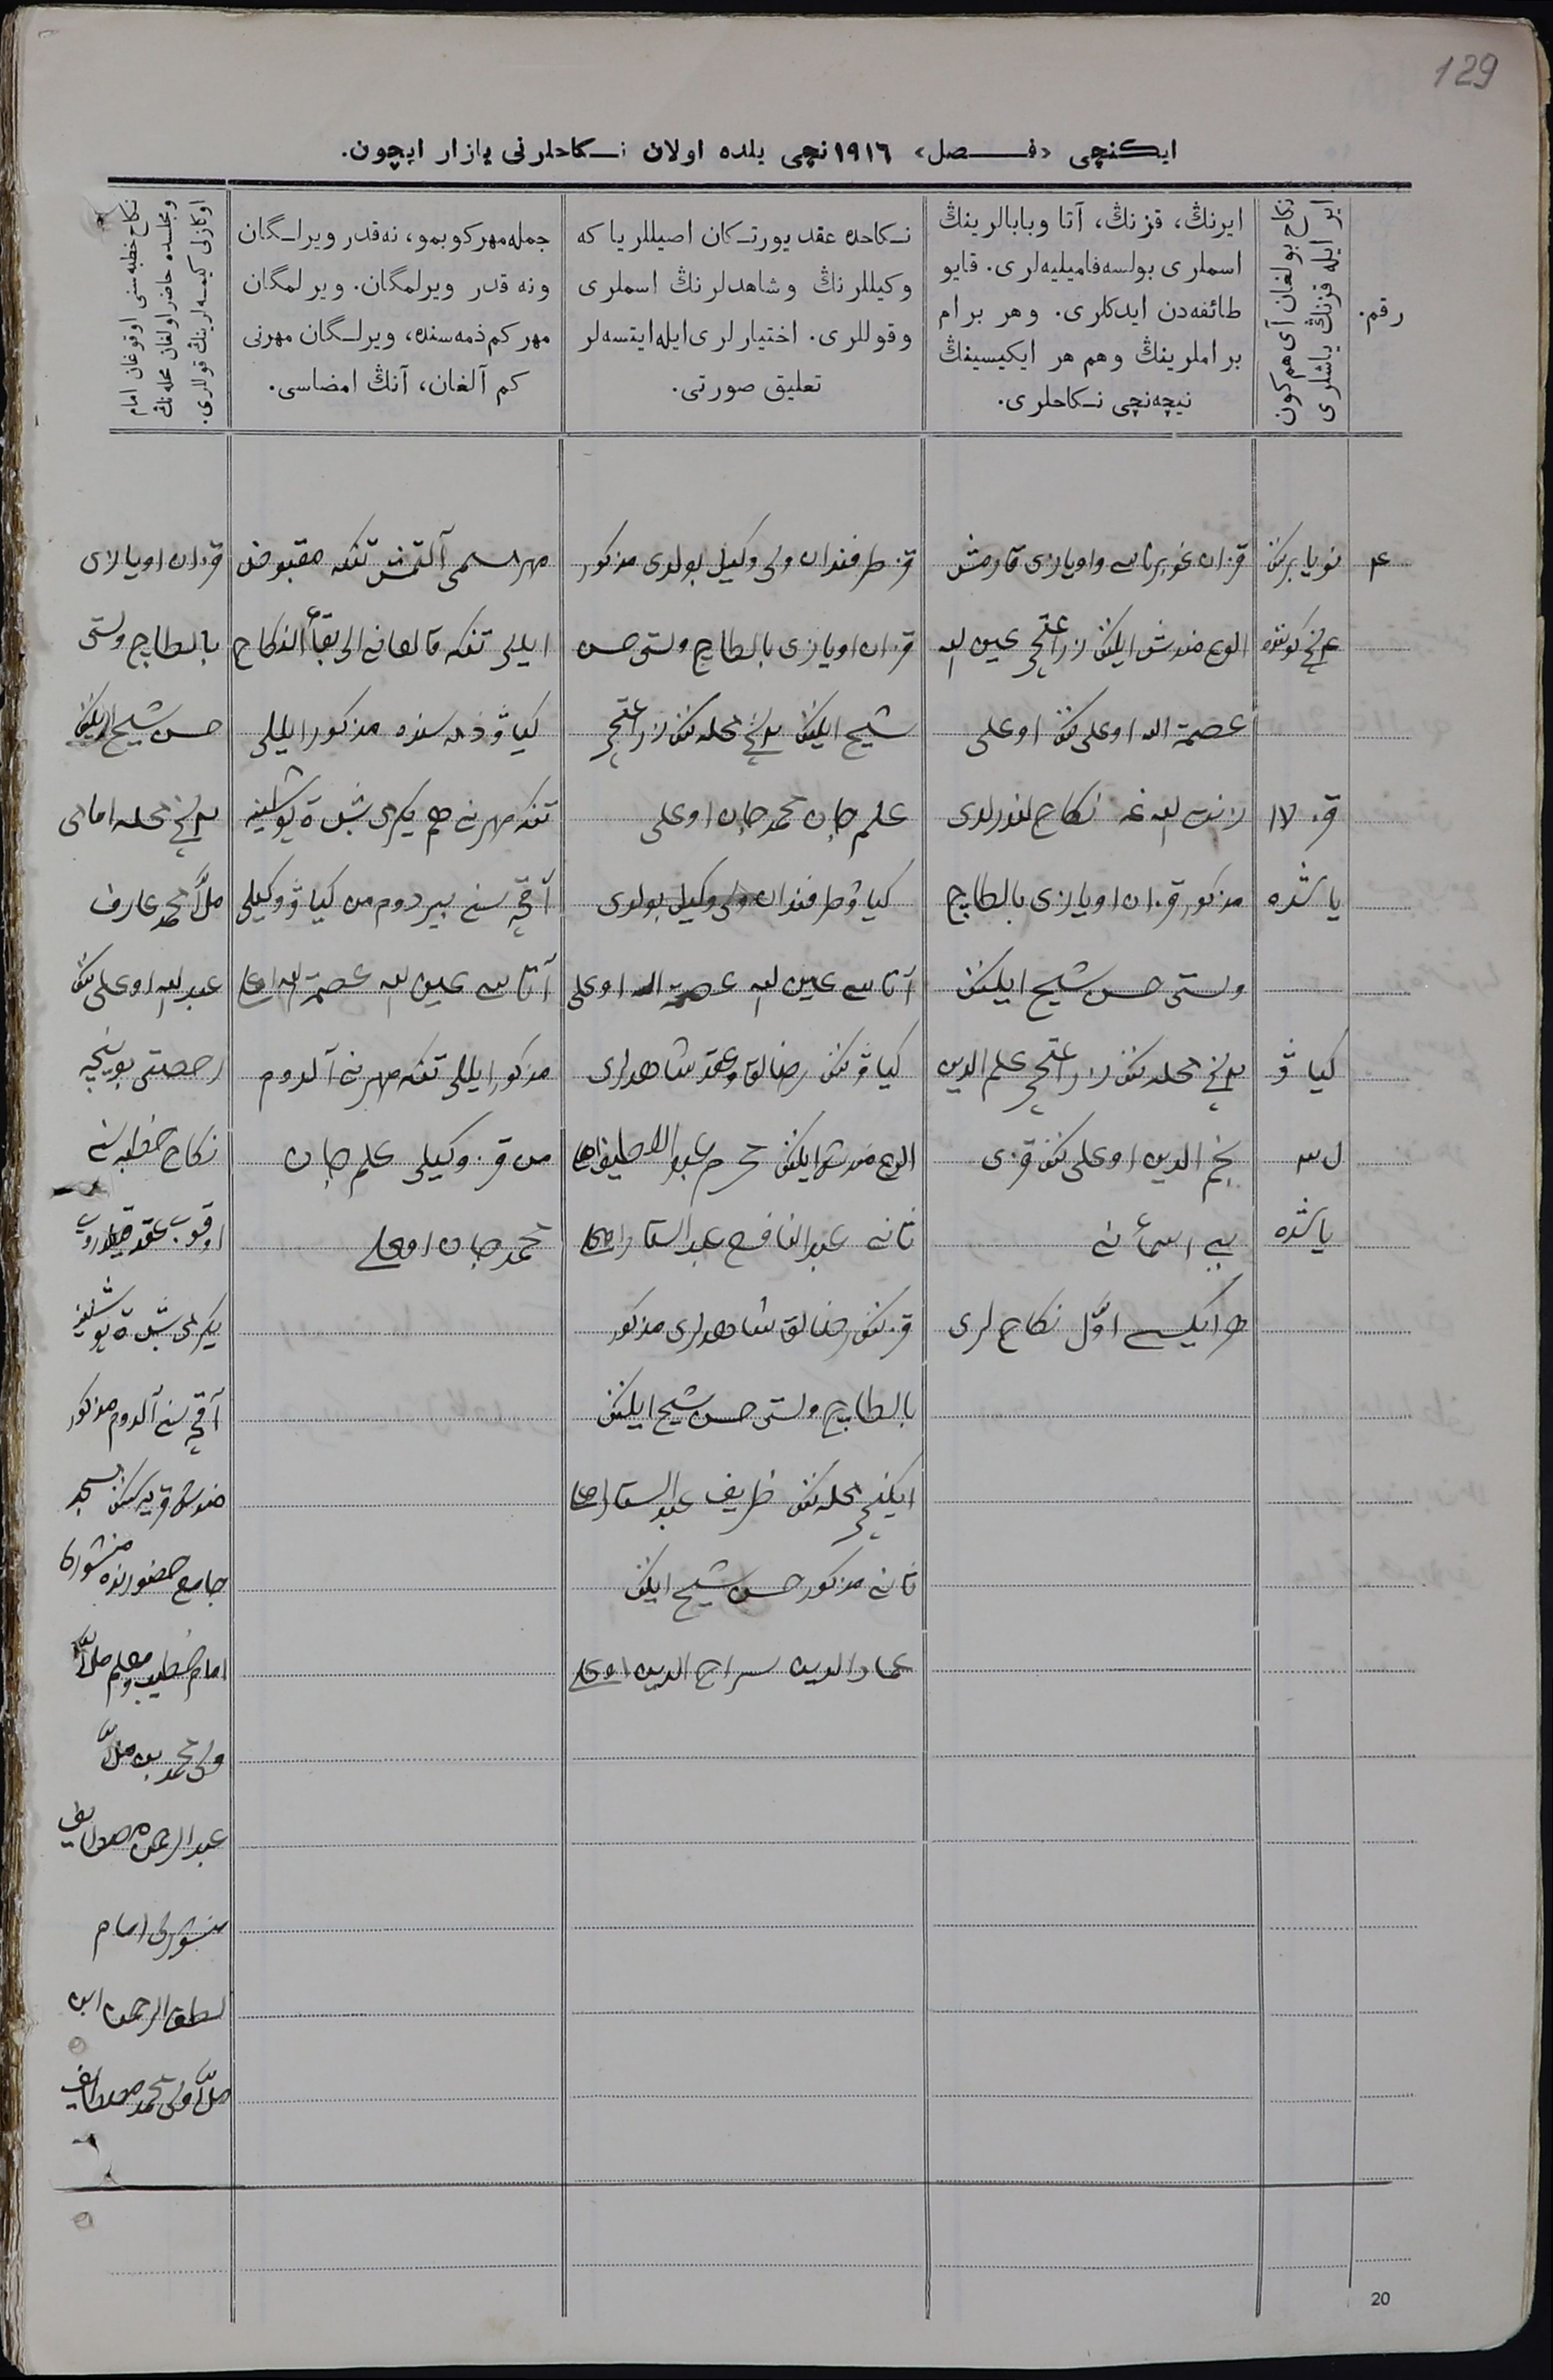 129
ایکنچی «فـصل» ١٩١٦ نچی یلده اولان نـکاحلرنی یازار ایچون.
رقم.
نکاح بولغان آی هم کون
ایر ایله قزنڭ یاشلری
ایرنڭ، قزنڭ، آتا وبابالرینڭ
اسملری بولسه فامیلیه‌لری. قایو
طائفه‌دن ایدکلری. وهر برام
براملرینڭ وهم هر ایکیسینڭ
نیچه‌نچی نـکاحلری.
نـکاحده عقد یورتـکان اصیللر یا که
وکیللرنڭ وشاهدلرنڭ اسملری
وقوللری. اختیارلری ایله ایتسه‌لر
تعلیق صورتی.
جمله مهر کوبمو، نه‌قدر ویرلـگان
ونه قدر ویرلمگان. ویرلمگان
مهر کم ذمه‌سنده، ویرلـگان مهرنی
کم آلغان، آنڭ امضاسی.
نکاح خطبه‌سنی اوقوغان امام
ومجلسده حاضر اولغان محله‌نڭ
اوکازلی کیمسه‌لرینڭ قوللری.
٤
نویابرنڭ
نچی کوننده
قز ١٧
یاشده
کیاو
یاشده
قزان غوبرناسی واویازی قارمش
ایلنڭ زراعتچی عین الله
عصمة الله اوغلی ننڭ اوغلی
الله غه نکاح لندرلدی
مذکور قزان اویازی بالطاچ
ولستی حسن شیخ ایلنڭ
نچی محله ننڭ زراعتچی علم الدین
نجم الدین اوغلی ننڭ قزی
بی اسمأ نی
هر ایکیسی اوّل نکاح لری
قز طرفندان ولی وکیل بولدی مذکور
قزان اویازی بالطاچ ولستی حسن
شیخ ایلنڭ نچی محله ننڭ زراعتچی
علم جان محمد جان اوغلی
کیاو طرفندان ولی وکیل بولدی
آتاسی عین الله عصمة الله اوغلی
کیاو ننڭ رضالق وعقد شاهدلری
ایلنڭ محرم عبد اللطیف اوغلی
ثانی عبد النافع عبد الستار اوغلی
قزننڭ رضالق شاهدلری مذکور
بالطاچ ولستی حسن شیخ ایلنڭ
ایکنچی محله ننڭ ظریف عبد الستار اوغلی
ثانی مذکور حسن شیخ ایلنڭ
عماد الدین سراج الدین اوغلی
مهر مسمی آلتمش تنکه مقبوض
ایللی تنکه قالغانی الی بقأ النکاح
کیاو ذمه سنده مذکور ایللی
تنکه مهرنی هم یکرمی بش
آقچه سنی بیردوم من کیاو وکیلی
آتاسی عین الله عصمة الله اوغلی
مذکور ایللی تنکه مهرنی آلدوم
من قز وکیلی علم جان
محمد جان اوغلی
قزان اویازی
بالطاچ ولستی
حسن شیخ ایلنڭ
نچی محله امامی
ملّا محمد عارف
عبد الله اوغلی ننڭ
رخصتی بوینچه
نکاح خطبه سنی
اوقوب عقد قیلدروب
یکرمی بش
آقچه سنی آلدوم مذکور
قریه سننڭ مسجد
جامع حضورنده منشورلی
امام خطیب ومعلم ملّا
ولی محمد بن ملّا
عبد الرحمن
منشورلی امام
لطف الرحمن ابن
ملّا ولی محمد
20